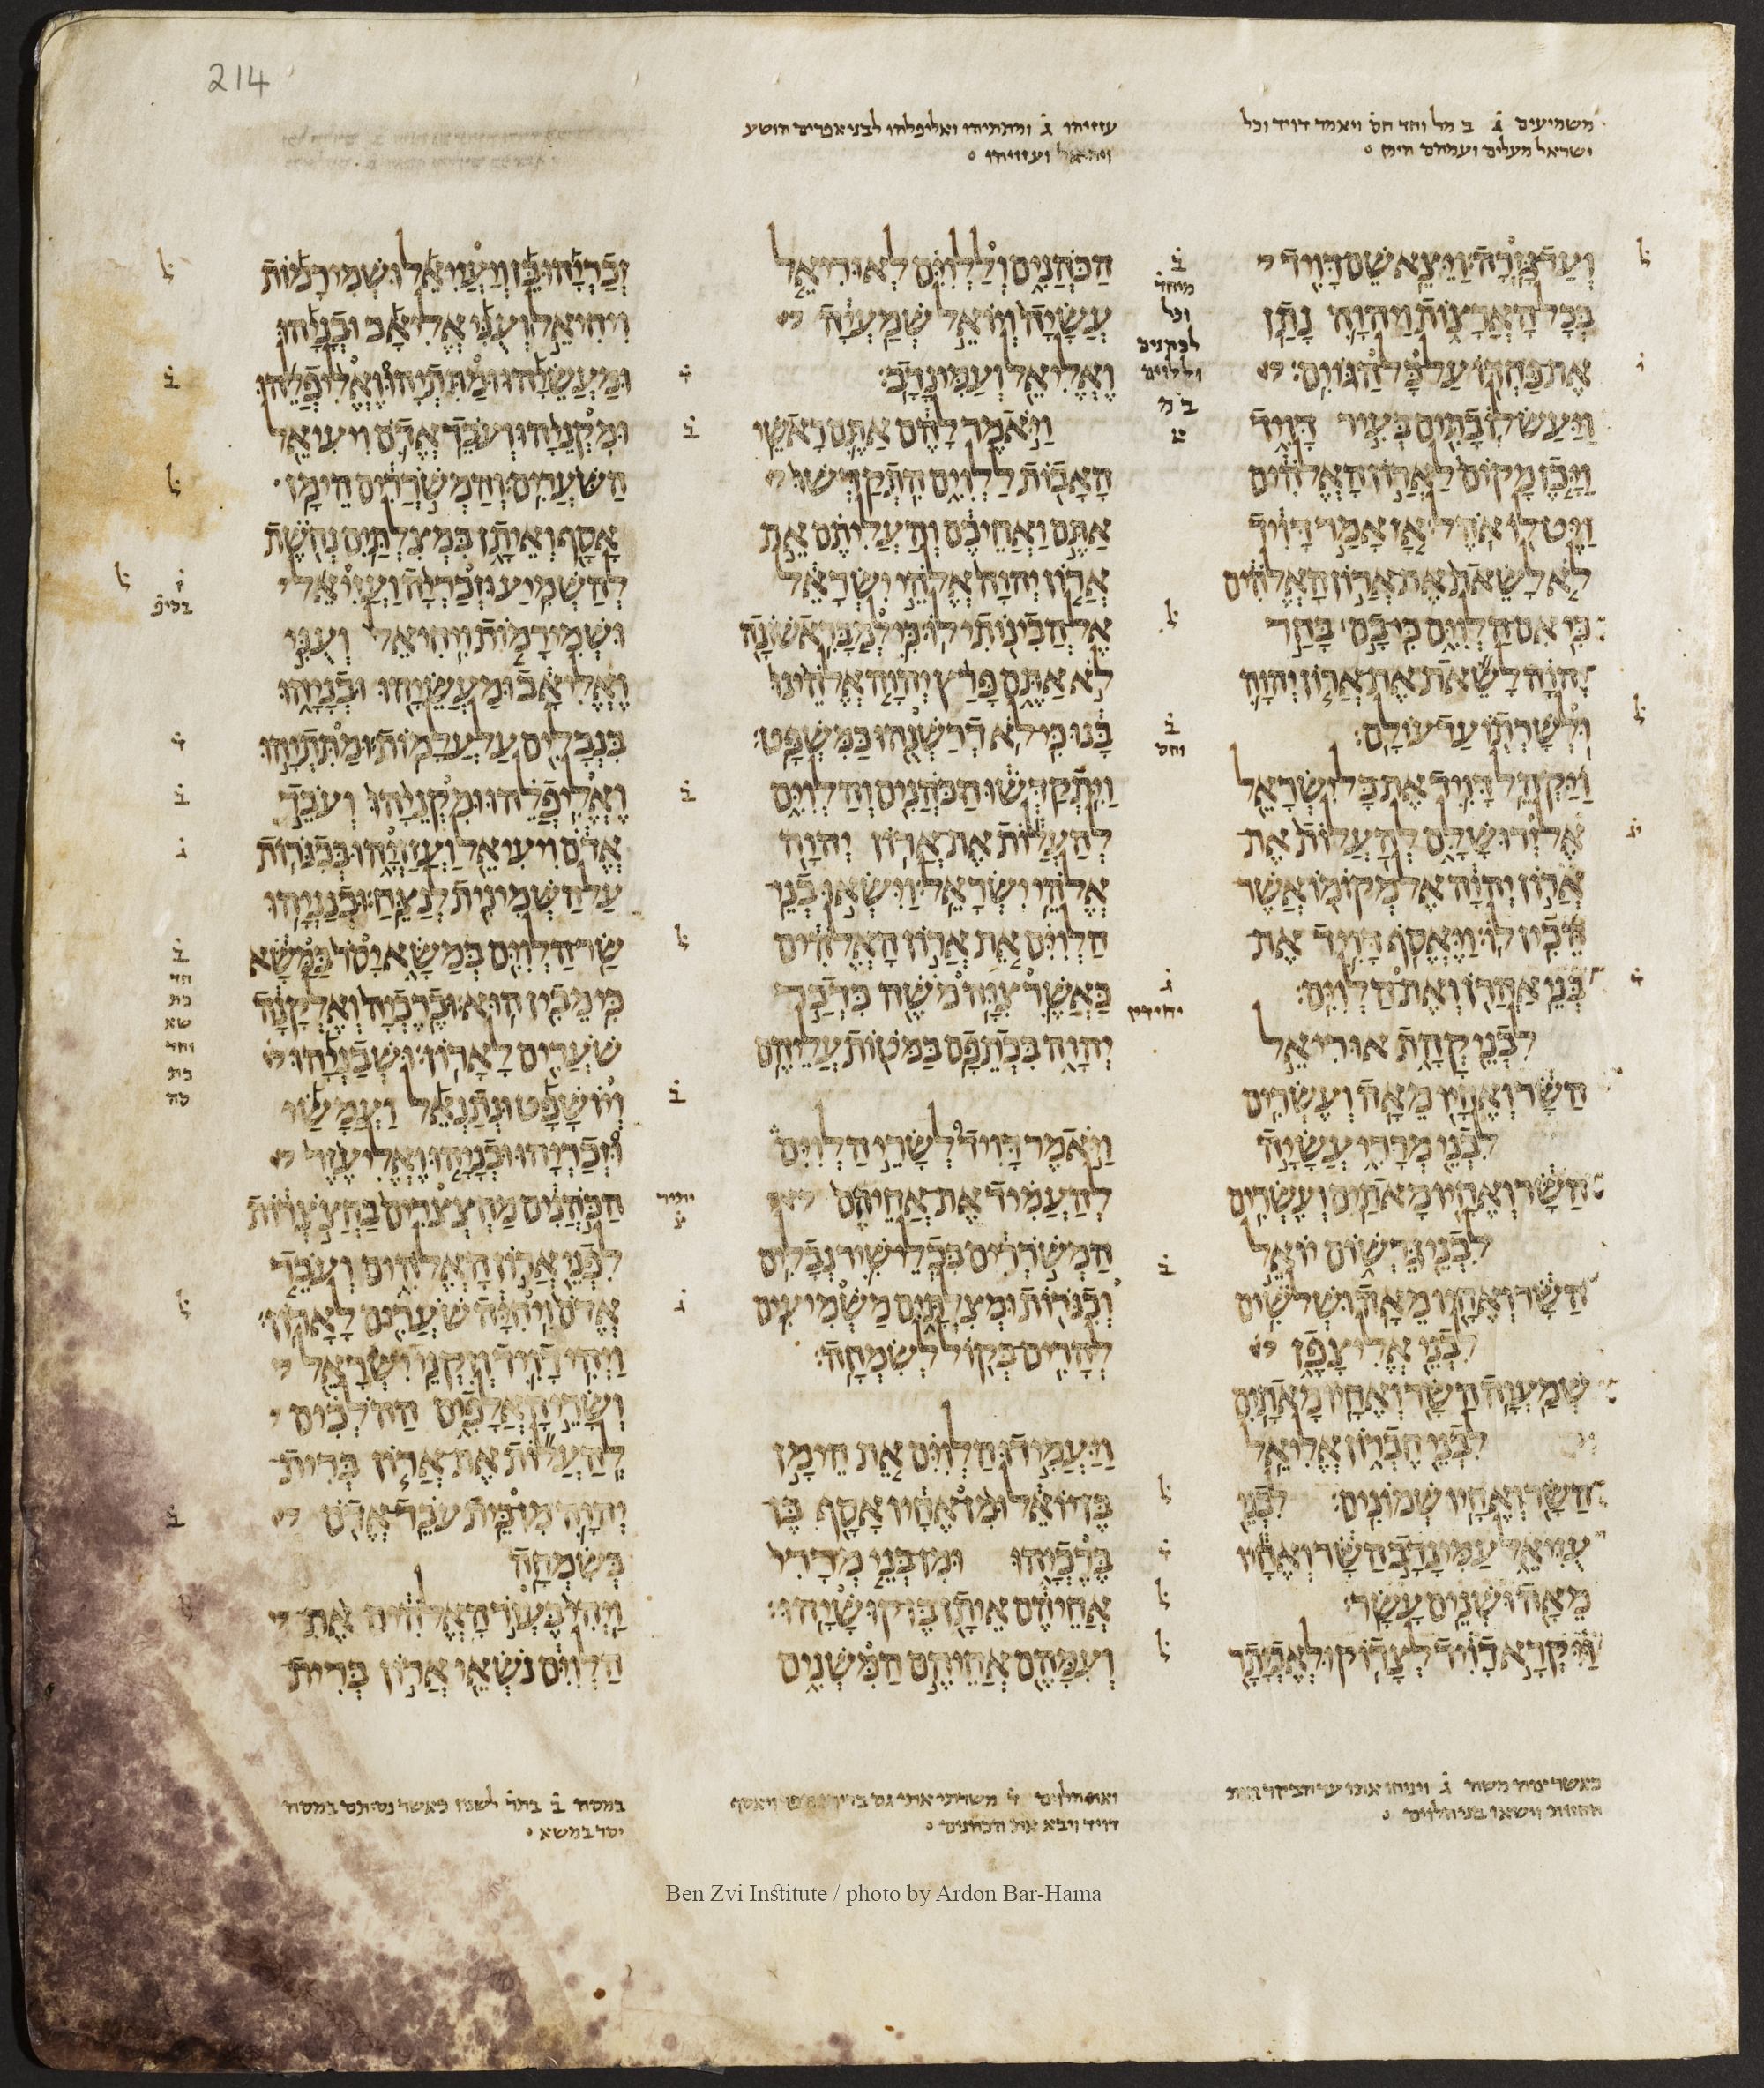 214
משמיעים ג ב מל וחד חס ויאמר דויד וכל
ישראל מעלים ועמהם הימן
עזזיהו ג ומתתיהו ואליפלהו לבני אפרים הושע
ויחיאל ועזזיהו
ועד גזרה ויצא שם דויד
בכל הארצות ויהוה נתן
את פחדו על כל הגוים׃
ויעש לו בתים בעיר דויד
ויכן מקום לארון האלהים
ויט לו אהל׃ אז אמר דויד
לא לשאת את ארון האלהים
כי אם הלוים כי בם בחר
יהוה לשאת את ארון יהוה
ולשרתו עד עולם׃
ויקהל דויד את כל ישראל
אל ירושלם להעלות את
ארון יהוה אל מקומו אשר
הכין לו׃ ויאסף דויד את
בני אהרן ואת הלוים׃
לבני קהת אוריאל
השר ואחיו מאה ועשרים
לבני מררי עשיה
השר ואחיו מאתים ועשרים
לבני גרשום יואל
השר ואחיו מאה ושלשים
לבני אליצפן
שמעיה השר ואחיו מאתים
לבני חברון אליאל
השר ואחיו שמונים׃ לבני
עזיאל עמינדב השר ואחיו
מאה ושנים עשר׃
ויקרא דויד לצדוק ולאביתר
הכהנים וללוים לאוריאל
עשיה ויואל שמעיה
ואליאל ועמינדב׃
ויאמר להם אתם ראשי
האבות ללוים התקדשו
אתם ואחיכם והעליתם את
ארון יהוה אלהי ישראל
אל הכינותי לו׃ כי למבראשונה
לא אתם פרץ יהוה אלהינו
בנו כי לא דרשנהו כמשפט׃
ויתקדשו הכהנים והלוים
להעלות את ארון יהוה
אלהי ישראל׃ וישאו בני
הלוים את ארון האלהים
כאשר צוה משה כדבר
יהוה בכתפם במטות עליהם
ויאמר דויד לשרי הלוים
להעמיד את אחיהם
המשררים בכלי שיר נבלים
וכנרות ומצלתים משמיעים
להרים בקול לשמחה׃
ויעמידו הלוים את הימן
בן יואל ומן אחיו אסף בן
ברכיהו ומן בני מררי
אחיהם איתן בן קושיהו׃
ועמהם אחיהם המשנים
זכריהו בן ויעזיאל ושמירמות
ויחיאל ועני אליאב ובניהו
ומעשיהו ומתתיהו ואליפלהו
ומקניהו ועבד אדם ויעיאל
השערים׃ והמשררים הימן
אסף ואיתן במצלתים נחשת
להשמיע׃ וזכריה ועזיאל
ושמירמות ויחיאל ועני
ואליאב ומעשיהו ובניהו
בנבלים על עלמות׃ ומתתיהו
ואליפלהו ומקניהו ועבד
אדם ויעיאל ועזזיהו בכנרות
על השמינית לנצח׃ וכנניהו
שר הלוים במשא יסר במשא
כי מבין הוא׃ וברכיה ואלקנה
שערים לארון׃ ושבניהו
ויושפט ונתנאל ועמשי
וזכריהו ובניהו ואליעזר
הכהנים מחצצרים בחצצרות
לפני ארון האלהים ועבד
אדם ויחיה שערים לארון׃
ויהי דויד וזקני ישראל
ושרי האלפים ההלכים
להעלות את ארון ברית
יהוה מן בית עבד אדם
בשמחה
ויהי בעזר האלהים את
הלוים נשאי ארון ברית
כאשר צוה משה ג ויניחו אותו עד הבקר
וישאו בני הלוים
ואת הלוים משרתי אתי ויאסף
דויד ויבא את הכהנים
במסה ב בתר לשנין כאשר נסיתם במסה
יסר במשא
Ben Zvi Institute / photo by Ardon Bar-Hama